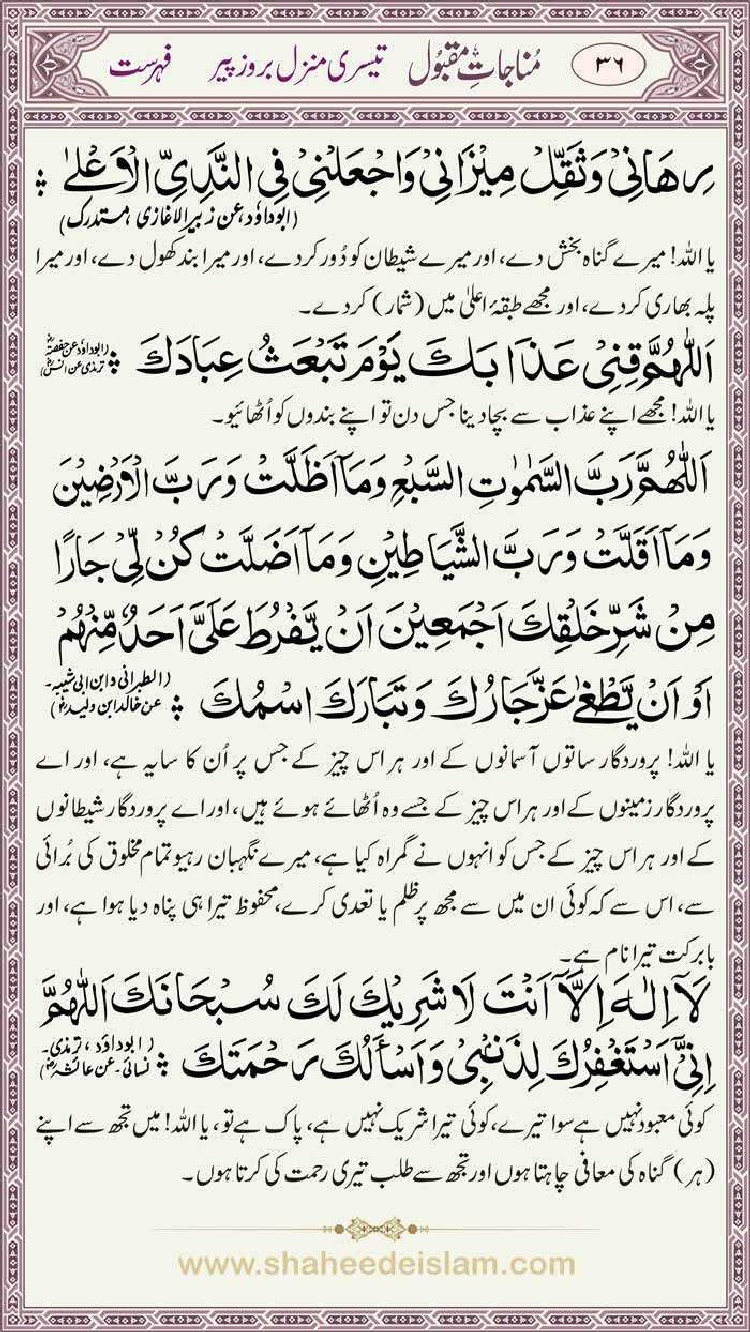 ۳۶ مُناجاتِ مقبُول تیسری منزل بروز پیر فہرست
رِهَانِیْ وَثَقِّلْ مِیْزَانِیْ وَاجْعَلْنِیْ فِی النَّدِیِّ الْاَعْلٰی ؞
(ابوداؤد، عن زہیر الاغازی، مستدرک)
یا اللہ! میرے گناہ بخش دے، اور میرے شیطان کو دُور کردے، اور میرا بند کھول دے، اور میرا
پلہ بھاری کردے، اور مجھے طبقۂ اعلیٰ میں (شمار) کردے۔
اَللّٰهُمَّ قِنِیْ عَذَابَكَ یَوْمَ تَبْعَثُ عِبَادَكَ ؞ (ابوداؤد عن حفصہؓ ترمذی عن انسؓ)
یا اللہ! مجھے اپنے عذاب سے بچا دینا جس دن تو اپنے بندوں کو اُٹھائیو۔
اَللّٰهُمَّ رَبَّ السَّمٰوٰتِ السَّبْعِ وَمَآ اَظَلَّتْ وَرَبَّ الْاَرْضِیْنَ
وَمَآ اَقَلَّتْ وَرَبَّ الشَّیَاطِیْنِ وَمَآ اَضَلَّتْ كُنْ لِّیْ جَارًا
مِنْ شَرِّ خَلْقِكَ اَجْمَعِیْنَ اَنْ یَّفْرُطَ عَلَیَّ اَحَدٌ مِّنْهُمْ
اَوْ اَنْ یَّطْغٰی عَزَّ جَارُكَ وَتَبَارَكَ اسْمُكَ ؞ (الطبرانی و ابن ابی شیبہ۔ عن خالد ابن ولیدؓ)
یا اللہ! پروردگار ساتوں آسمانوں کے اور ہر اس چیز کے جس پر اُن کا سایہ ہے، اور اے
پروردگار زمینوں کے اور ہر اس چیز کے جسے وہ اُٹھائے ہوئے ہیں، اور اے پروردگار شیطانوں
کے اور ہر اس چیز کے جس کو انہوں نے گمراہ کیا ہے، میرے نگہبان رہیو تمام مخلوق کی بُرائی
سے، اس سے کہ کوئی ان میں سے مجھ پر ظلم یا تعدی کرے، محفوظ تیرا ہی پناہ دیا ہوا ہے، اور
بابرکت تیرا نام ہے۔
لَآ اِلٰهَ اِلَّآ اَنْتَ لَا شَرِیْكَ لَكَ سُبْحَانَكَ اَللّٰهُمَّ
اِنِّیْٓ اَسْتَغْفِرُكَ لِذَنْۢبِیْ وَاَسْأَلُكَ رَحْمَتَكَ ؞ (ابوداؤد، ترمذی۔ نسائی۔ عن عائشہؓ)
کوئی معبود نہیں ہے سوا تیرے، کوئی تیرا شریک نہیں ہے، پاک ہے تو، یا اللہ! میں تجھ سے اپنے
(ہر) گناہ کی معافی چاہتا ہوں اور تجھ سے طلب تیری رحمت کی کرتا ہوں۔
www.shaheedeislam.com